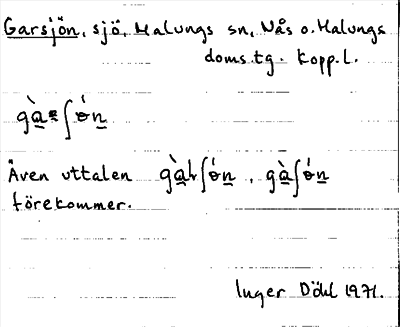 Garsjön, sjö, Malungs sn, Nås o. Malungs
doms.tg. Kopp.l.
Även uttalen
förekommer.
Inger Döhl 1971.